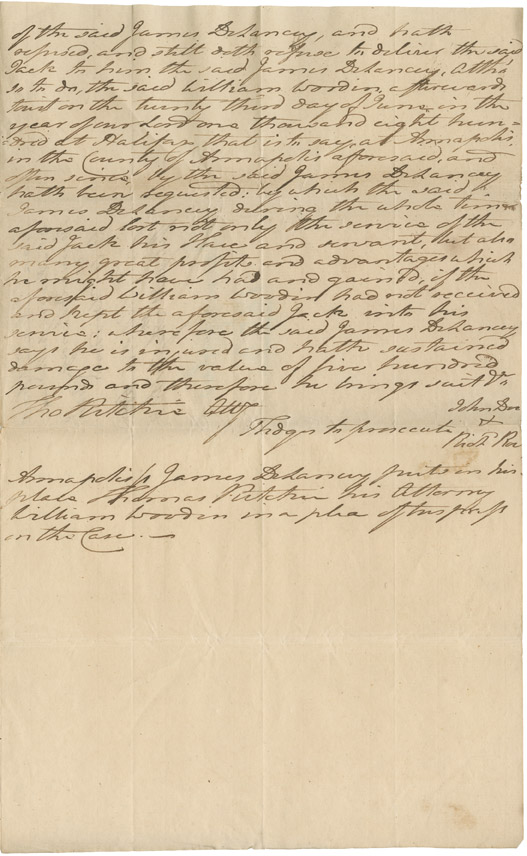 of the said James DeLancey, and hath
refused, and still doth refuse to deliver the said
Jack to him, the said James DeLancey, altho'
so to do, the said William Woodin, afterwards
to wit on the twenty third day of June in the
year of our Lord one thousand eight hun=
dred at Halifax, that is to say, at Annapolis,
in the County of Annapolis aforesaid, and
often since, by the said James DeLancey
hath been requested: by which the said
James DeLancey during the whole time
aforesaid lost not only the service of the
said Jack his Slave and servant, but also
many great profits and advantages which
he might have had and gained, if the
aforesaid William Woodin had not received
and kept the aforesaid Jack into his
service: wherefore the said James DeLancey
says he is injured and hath sustained
damage to the value of five hundred
pounds and therefore he brings suit &c
Tho Ritchie Atty
John Doe
Pledges to prosecute &
Richd Roe
Annapolis ss James DeLancey puts in his
place Thomas Ritchie his Attorney
William Woodin in a plea of trespass
on the Case. —